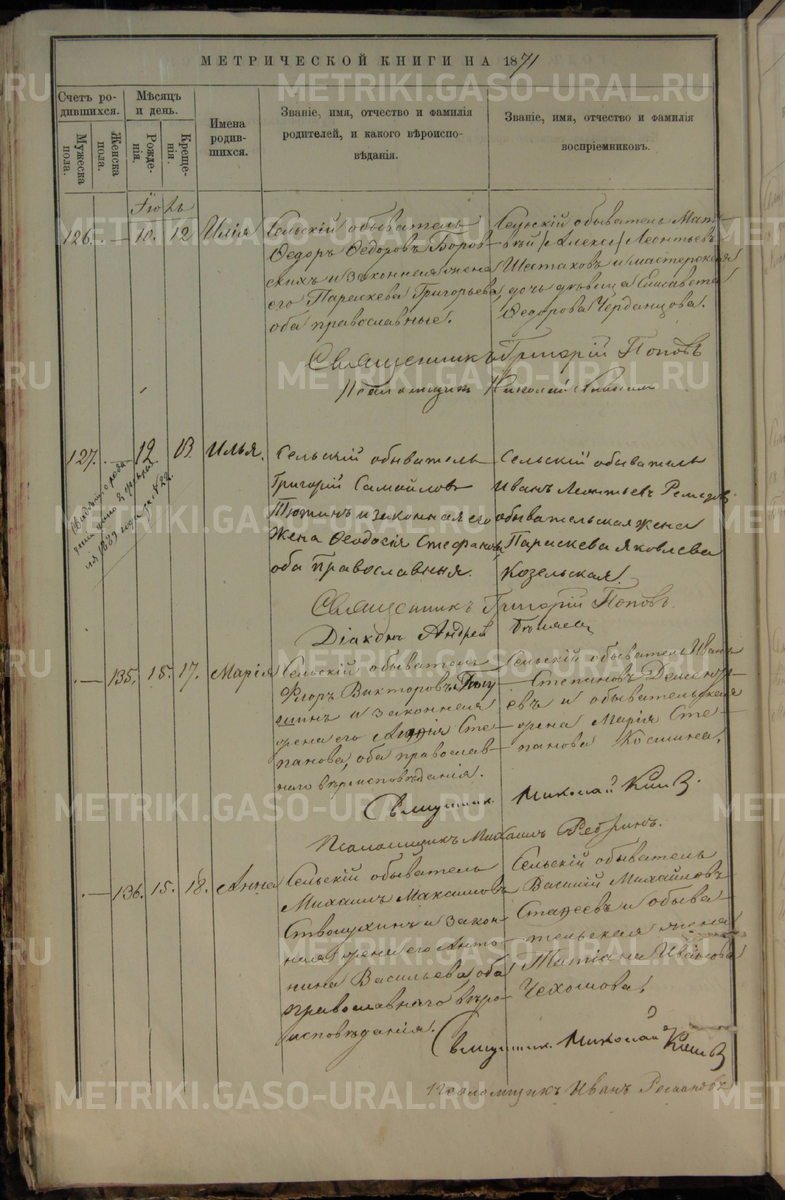 МЕТРИЧЕСКОЙ КНИГИ НА 1871
Счетъ родившихся.
Мѣсяцъ и день.
Имена родившихся.
Званіе, имя, отчество и фамилія родителей, и какого вѣроисповѣданія.
Званіе, имя, отчество и фамилія воспріемниковъ.
Мужеска пола.
Женска пола.
Рожденія.
Крещенія.
Іюль
126. — 10. 12 Илія
Сельскій обыватель
Ѳедоръ Ѳедоровъ Боров-
скихъ и законная жена
его Параскева Григорьева,
оба православные.
Сельскій обыватель
Леонтьевъ
Шестаковъ и мастерская
дочь дѣвица Елисавета
Ѳедорова Черданцова.
Священникъ Григорій Поповъ
Псаломщикъ Николай
127. — 12. 13. Илья.
Сельскій обыватель
Григорій Самойловъ
и законная его
жена Ѳеодосія Стефанова,
оба православныя.
Сельскій обыватель
Иванъ Леонтьевъ
обывательская жена
Параскева Яковлева
Козельская.
Священникъ Григорій Поповъ.
Діаконъ Андрей
— 135. 15. 17. Марія
Сельскій обыватель
Флоръ Викторовъ
и законная
жена его Сте-
панова, оба православ-
наго вѣроисповѣданія.
Сельскій обыватель Иванъ
Степановъ Дементь-
евъ и обывательская
жена Марія Сте-
панова Косшина.
Священникъ Николай
Псаломщикъ Михаилъ Ребринъ.
— 136. 15. 18. Анна
Сельскій обыватель
Михаилъ Максимовъ
Стволухинъ и закон-
ная жена его Анто-
нина Васильева, оба
православнаго вѣро-
исповѣданія.
Сельскій обыватель
Василій Михайловъ
и обыва
тельская жена
Татіана Иванова
Чехомова.
Священникъ Николай
Псаломщикъ Иванъ Романовъ
METRIKI.GASO-URAL.RU